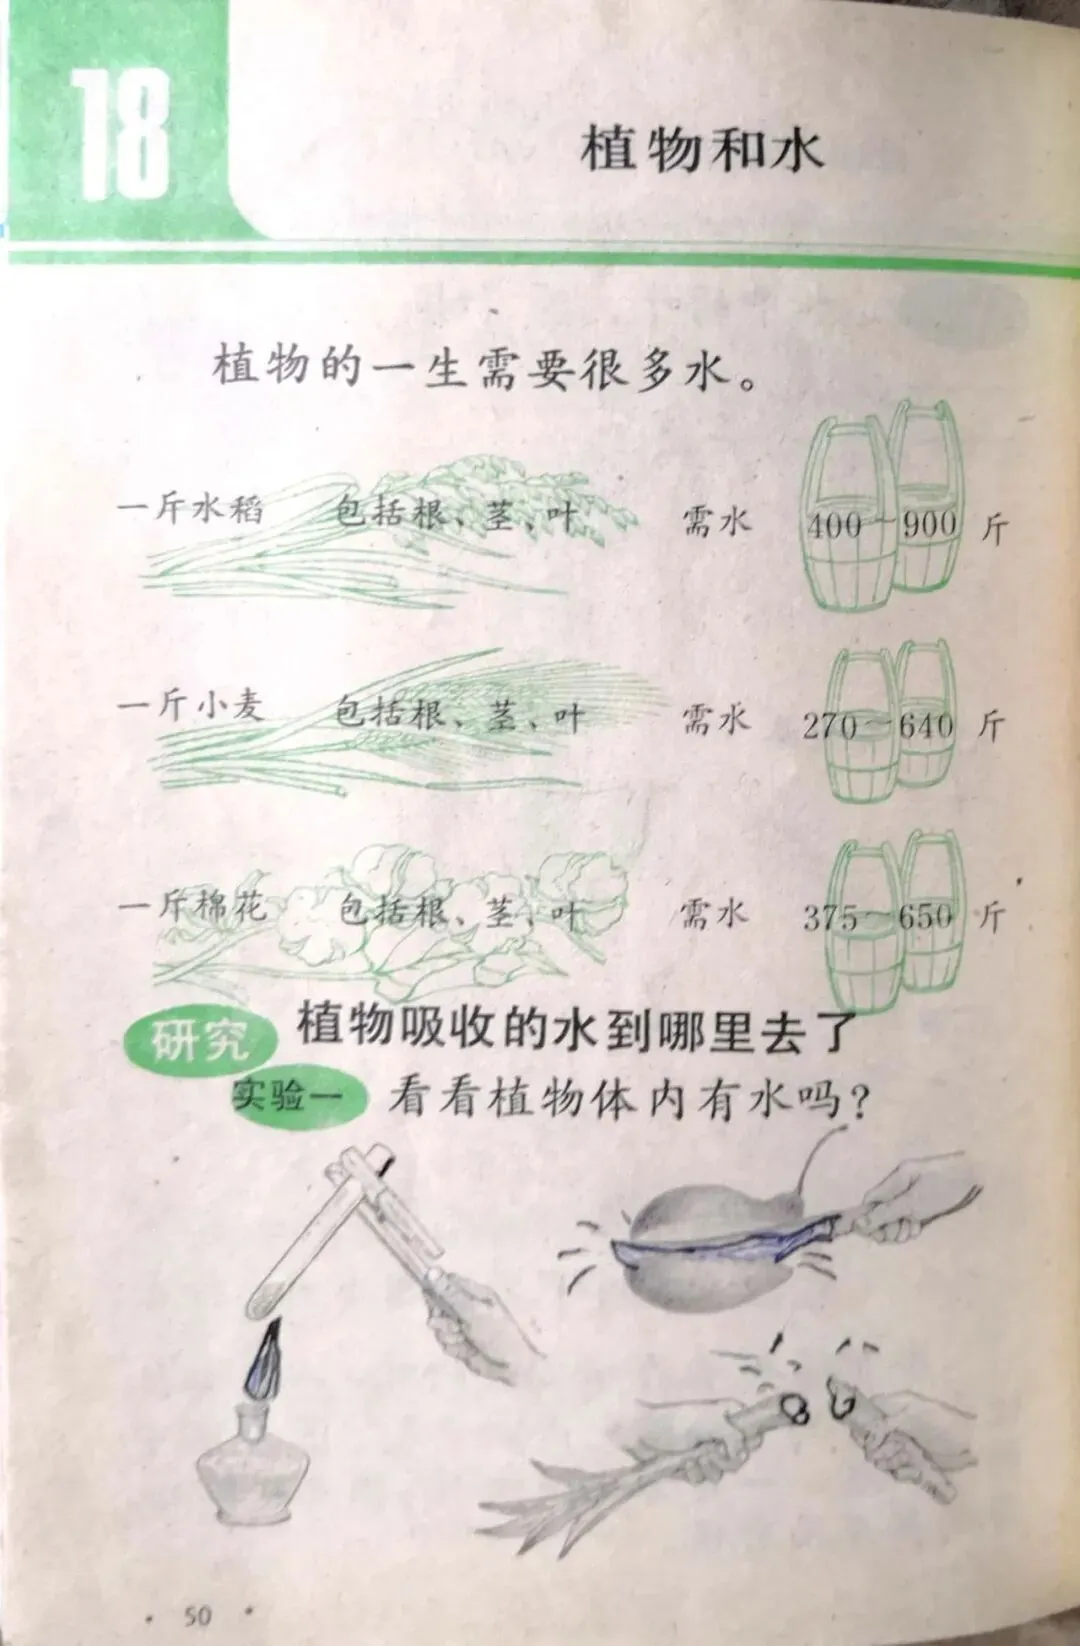 18
植物和水
植物的一生需要很多水。
一斤水稻 包括根、茎、叶 需水 400～900 斤
一斤小麦 包括根、茎、叶 需水 270～640 斤
一斤棉花 包括根、茎、叶 需水 375～650 斤
研究 植物吸收的水到哪里去了
实验一 看看植物体内有水吗？
· 50 ·